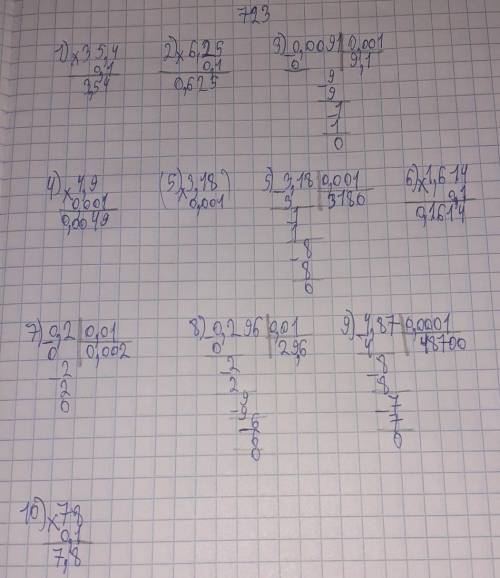 723
1) × 35,4
0,1
3,54
2) × 6,25
0,1
0,625
3) 0,0091 | 0,001
0 | 9,1
- 9
9
- 1
1
0
4) × 4,9
0,001
0,0049
(5) × 3,18)
0,001
5) - 3,18 | 0,001
3 | 3180
- 1
1
- 8
8
0
6) × 1,614
0,1
0,1614
7) - 0,2 | 0,01
0 | 0,002
- 2
2
0
8) - 0,296 | 0,01
0 | 29,6
- 2
2
- 9
9
- 6
6
0
9) - 4,87 | 0,0001
4 | 48700
- 8
8
- 7
7
0
10) × 78
0,1
7,8